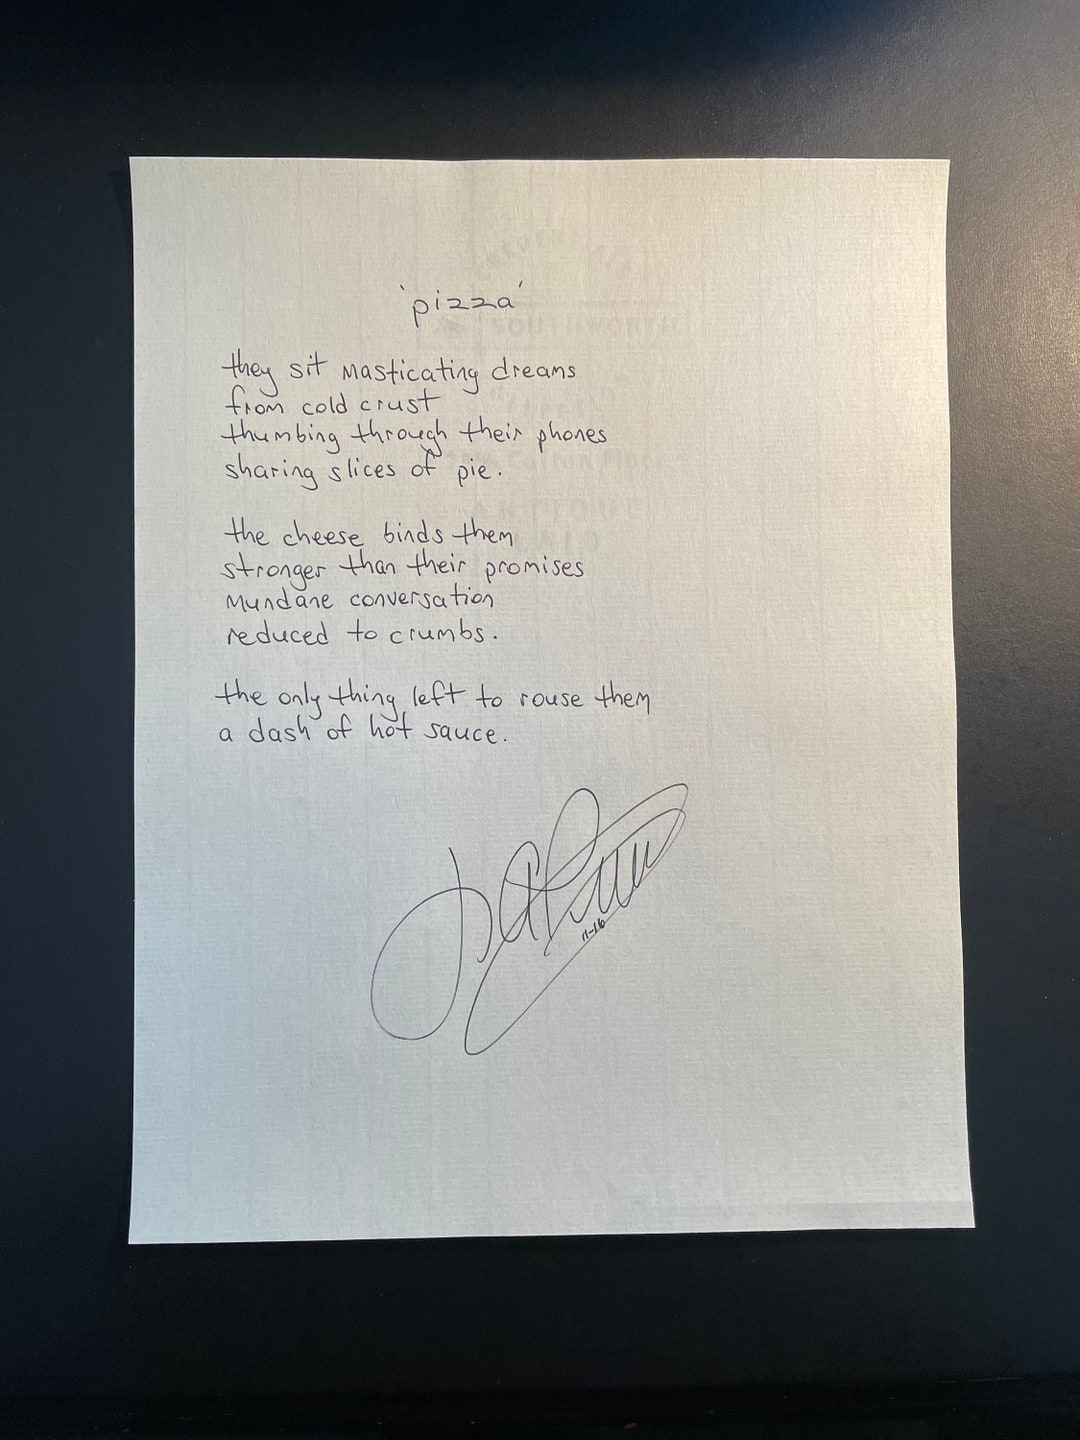 'pizza'
they sit masticating dreams
from cold crust
thumbing through their phones
sharing slices of pie.
the cheese binds them
stronger than their promises
mundane conversation
reduced to crumbs.
the only thing left to rouse them
a dash of hot sauce.
11-16
SOUTHWORTH
ANTIQUE
LAID